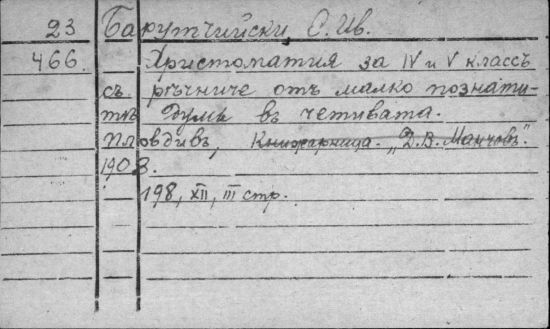 23 Барутчийски, С. Ив.
466. Христоматия за IV и V классъ
съ рѣчниче отъ малко познати-
тѣ думи въ четивата.
Пловдивъ, Книжарница "Д. В. Манчовъ".
1903.
198, XII, III стр.